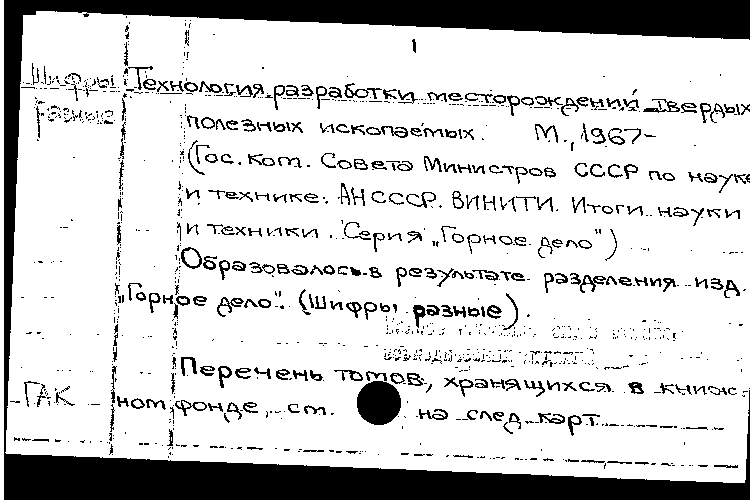 1
Шифры Технология разработки месторождений твердых
разные полезных ископаемых. М., 1967-
(Гос. ком. Совета Министров СССР по науке
и технике. АН СССР. ВИНИТИ. Итоги науки
и техники. Серия „Горное дело")
Образовалось в результате разделения изд.
„Горное дело". (Шифры разные).
Перечень томов, хранящихся в книж-
ГАК ном фонде, см. на след. карт.